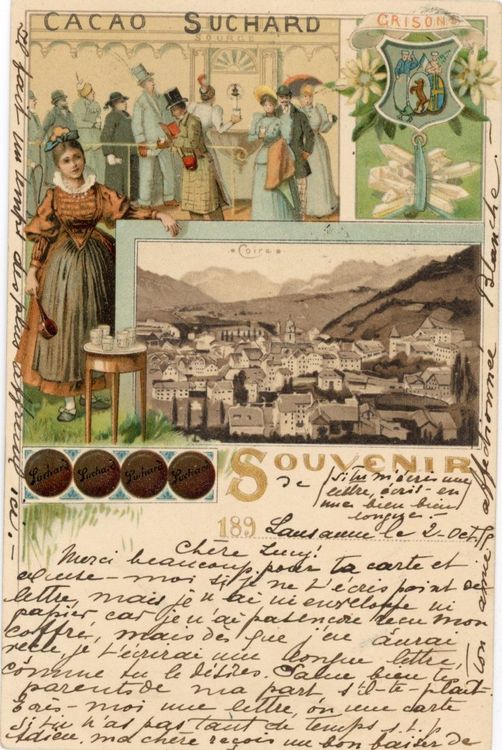 CACAO SUCHARD
SOURCE
GRISONS
Coire
Suchard Suchard Suchard Suchard
SOUVENIR
de
si tu m'écris une
lettre, écris-en
une bien bien
longue.
189
Lausanne le 2 Oct.
Chère Lucy!
Merci beaucoup pour ta carte et
excuse-moi si je ne t'écris point de
lettre, mais je n'ai ni enveloppe ni
papier, car je n'ai pas encore reçu mon
coffre, mais dès que j'en aurai
reçu, je t'écrirai une longue lettre,
comme tu le désires. Salue bien tes
parents de ma part s'il-te-plait.
Ecris-moi une lettre, ou une carte
si tu n'as pas tant de temps s.t.p.
Adieu, ma chère reçois un bon baiser de
ton amie affectionnée Blanche.
Il fait un temps des plus affreux ici.-